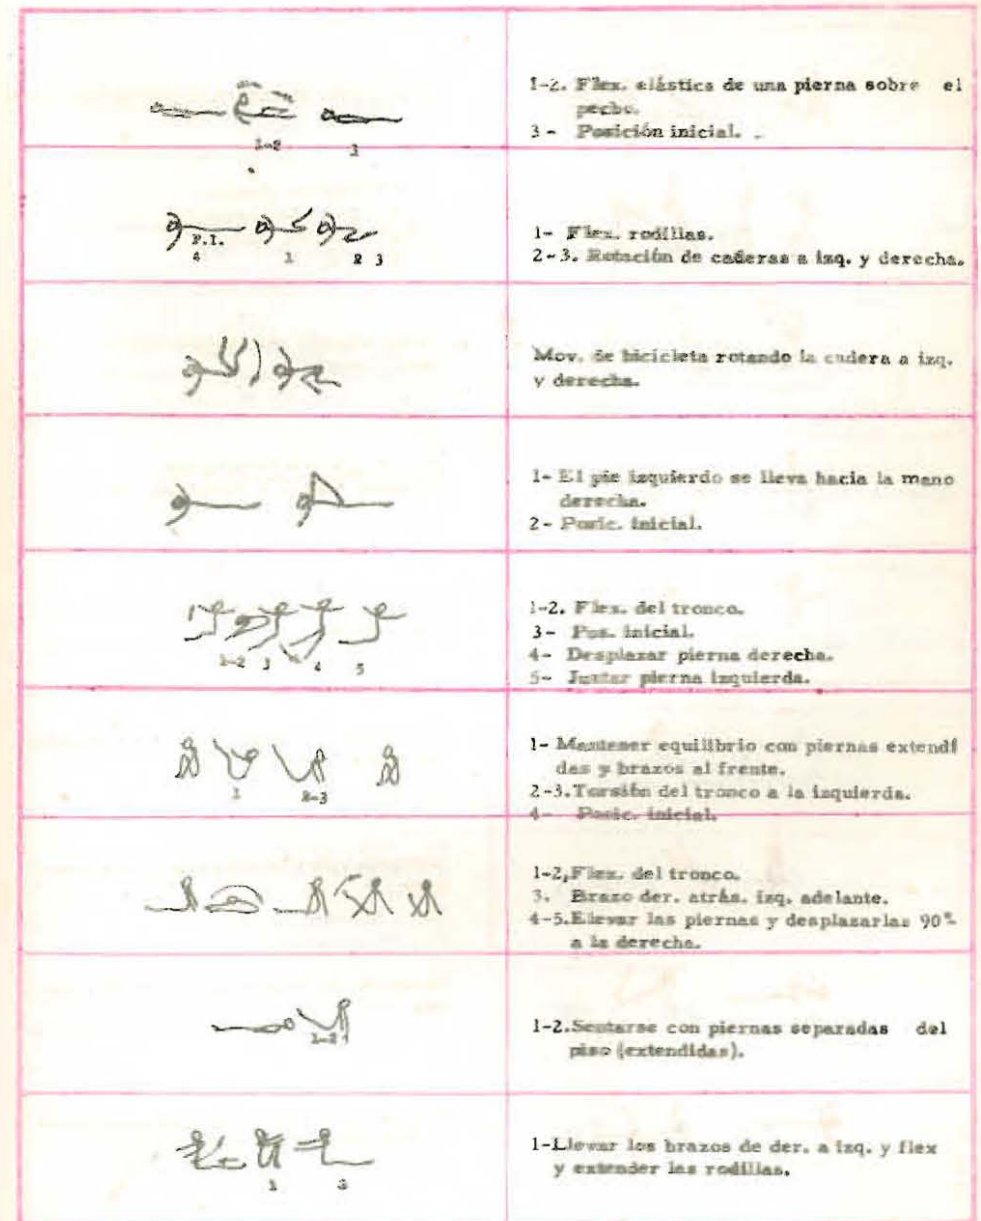 1-2. Flex. elástica de una pierna sobre el
pecho.
3 - Posición inicial.
1-2
3
P.I.
4
1
2 3
1- Flex. rodillas.
2-3. Rotación de caderas a izq. y derecha.
Mov. de bicicleta rotando la cadera a izq.
y derecha.
1- El pie izquierdo se lleva hacia la mano
derecha.
2- Posic. inicial.
1-2 3 4 5
1-2. Flex. del tronco.
3- Pos. inicial.
4- Desplazar pierna derecha.
5- Juntar pierna izquierda.
1
2-3
1- Mantener equilibrio con piernas extendi
das y brazos al frente.
2-3.Torsión del tronco a la izquierda.
4- Posic. inicial.
1-2,Flex. del tronco.
3. Brazo der. atrás. izq. adelante.
4-5.Elevar las piernas y desplazarlas 90°
a la derecha.
1-2
1-2.Sentarse con piernas separadas del
piso (extendidas).
1
2
1-Llevar los brazos de der. a izq. y flex
y extender las rodillas.